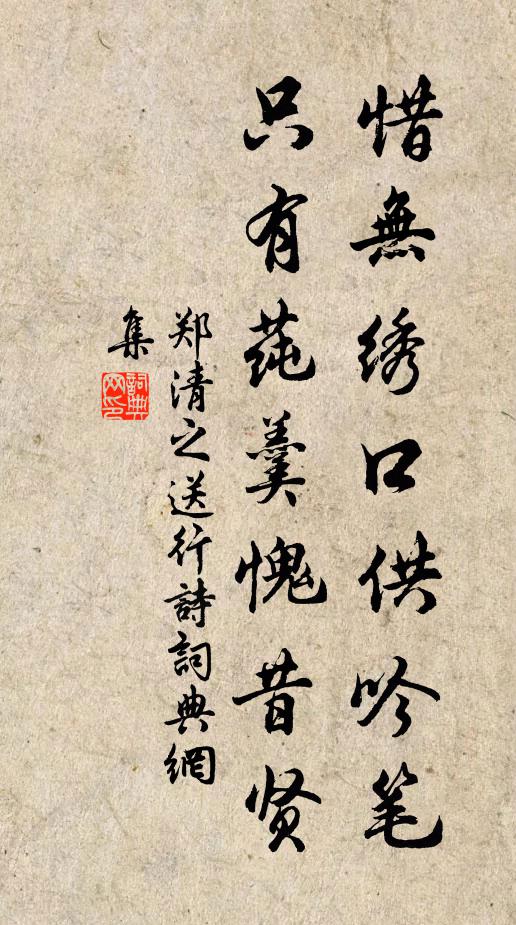 惜無绣口供吟笔
只有莼羹愧昔贤
郑清之送行詩詞典網
集
詞典网印